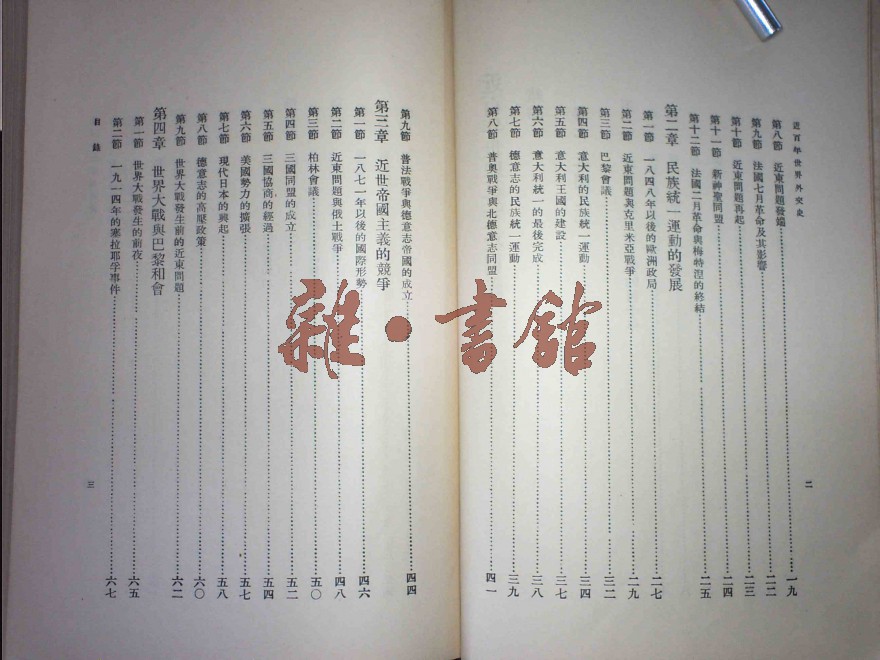 近百年世界外交史
二
第八節 近東問題發端……一九
第九節 法國七月革命及其影響……二二
第十節 近東問題再起……二三
第十一節 新神聖同盟……二四
第十二節 法國二月革命與梅特涅的終結……二五
第二章 民族統一運動的發展
第一節 一八四八年以後的歐洲政局……二七
第二節 近東問題與克里米亞戰爭……二九
第三節 巴黎會議……三二
第四節 意大利的民族統一運動……三四
第五節 意大利王國的建設……三七
第六節 意大利統一的最後完成……三八
第七節 德意志的民族統一運動……三九
第八節 普奧戰爭與北德意志同盟……四一
第九節 普法戰爭與德意志帝國的成立……四四
第三章 近世帝國主義的競爭
第一節 一八七一年以後的國際形勢……四六
第二節 近東問題與俄土戰爭……四八
第三節 柏林會議……五〇
第四節 三國同盟的成立……五二
第五節 三國協商的經過……五四
第六節 美國勢力的擴張……五七
第七節 現代日本的興起……五八
第八節 德意志的高壓政策……六〇
第九節 世界大戰發生前的近東問題……六二
第四章 世界大戰與巴黎和會
第一節 世界大戰發生的前夜……六五
第二節 一九一四年的塞拉耶孚事件……六七
目錄
三
雜·書館